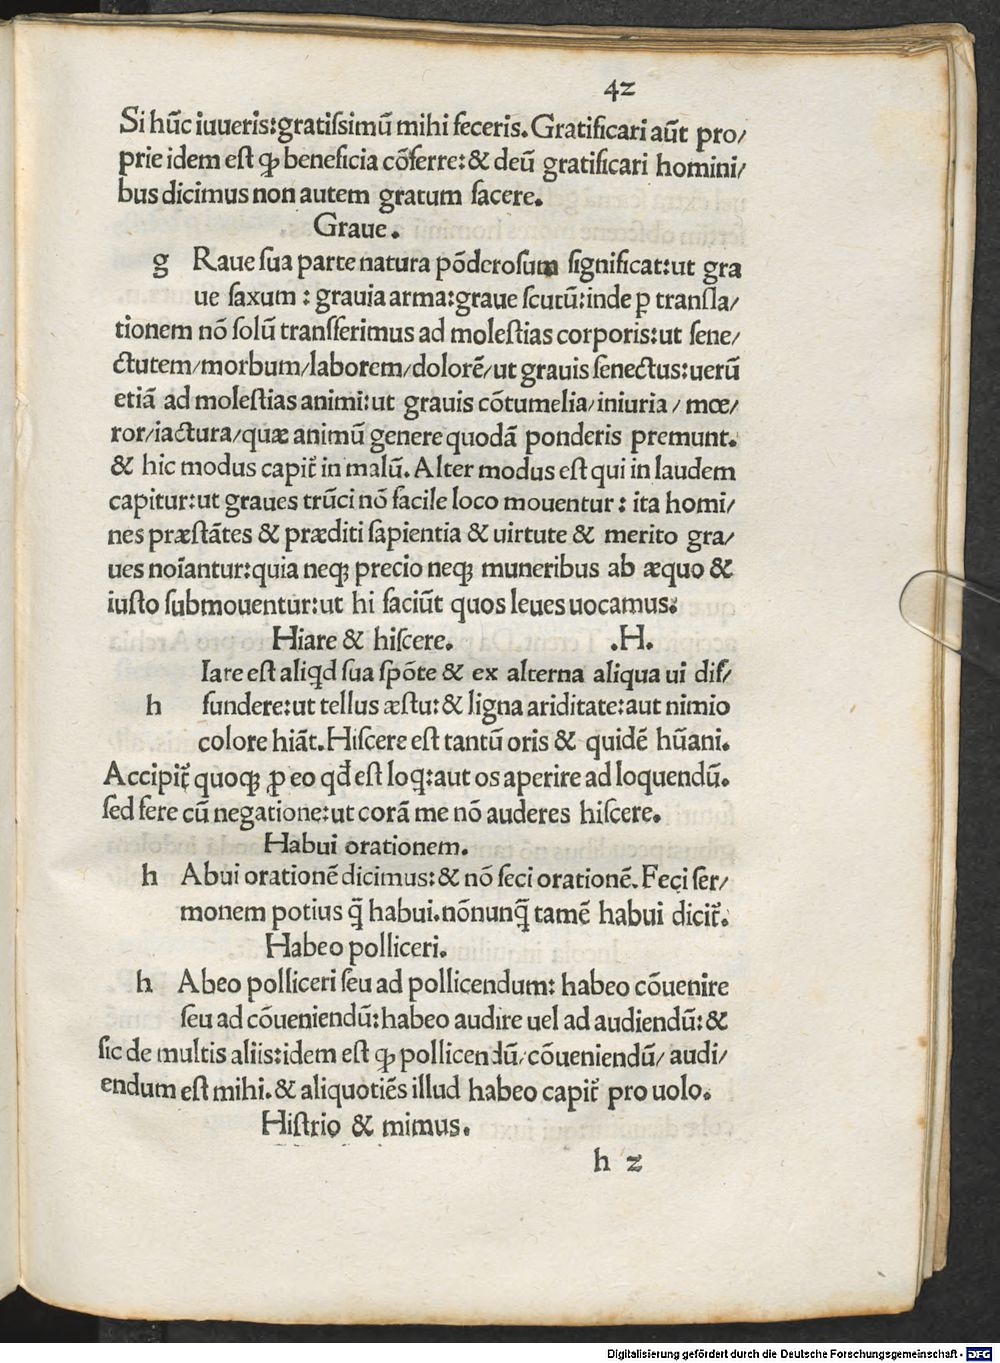 42
Si hũc iuueris:gratiſsimũ mihi feceris. Gratificari aũt pro/
prie idem eſt ꝙ beneficia cõferre: & deũ gratificari homini/
bus dicimus non autem gratum facere.
Graue.
g Raue ſua parte natura põderoſum ſignificat:ut gra
ue ſaxum : grauia arma:graue ſcutũ:inde ꝑ transla/
tionem nõ ſolũ transferimus ad moleſtias corporis:ut ſene/
ctutem/morbum/laborem/dolorẽ/ut grauis ſenectus:uerũ
etiã ad moleſtias animi:ut grauis cõtumelia/iniuria / mœ/
ror/iactura/quæ animũ genere quodã ponderis premunt.
& hic modus capit᷑ in malũ. Alter modus eſt qui in laudem
capitur:ut graues trũci nõ facile loco mouentur : ita homi/
nes præſtãtes & præditi ſapientia & uirtute & merito gra/
ues noĩantur:quia neqꝫ precio neqꝫ muneribus ab æquo &
iuſto ſubmouentur:ut hi faciũt quos leues uocamus.
Hiare & hiſcere. .H.
Iare eſt aliqd ſua ſpõte & ex alterna aliqua ui diſ/
h fundere:ut tellus æſtu: & ligna ariditate:aut nimio
colore hiãt. Hiſcere eſt tantũ oris & quidẽ hũani.
Accipit᷑ quoqꝫ ꝓ eo qđ eſt loq:aut os aperire ad loquendũ.
ſed fere cũ negatione:ut corã me nõ auderes hiſcere.
Habui orationem.
h Abui orationẽ dicimus: & nõ feci orationẽ. Feci ſer/
monem potius q̃ habui.nõnunq̃ tamẽ habui dicit᷑.
Habeo polliceri.
h Abeo polliceri ſeu ad pollicendum: habeo cõuenire
ſeu ad cõueniendũ:habeo audire uel ad audiendũ: &
ſic de multis aliis:idem eſt ꝙ pollicendũ/cõueniendũ/ audi/
endum eſt mihi. & aliquotiẽs illud habeo capit᷑ pro uolo.
Hiſtrio & mimus.
h 2
Digitalisierung gefördert durch die Deutsche Forschungsgemeinschaft - DFG